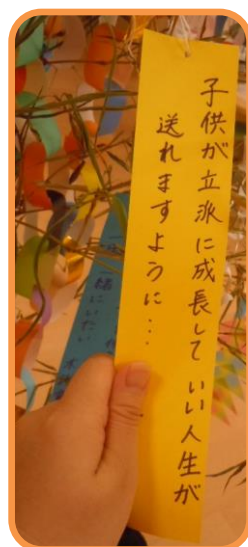 子供が立派に成長していい人生が
送れますように...
緒にいたい